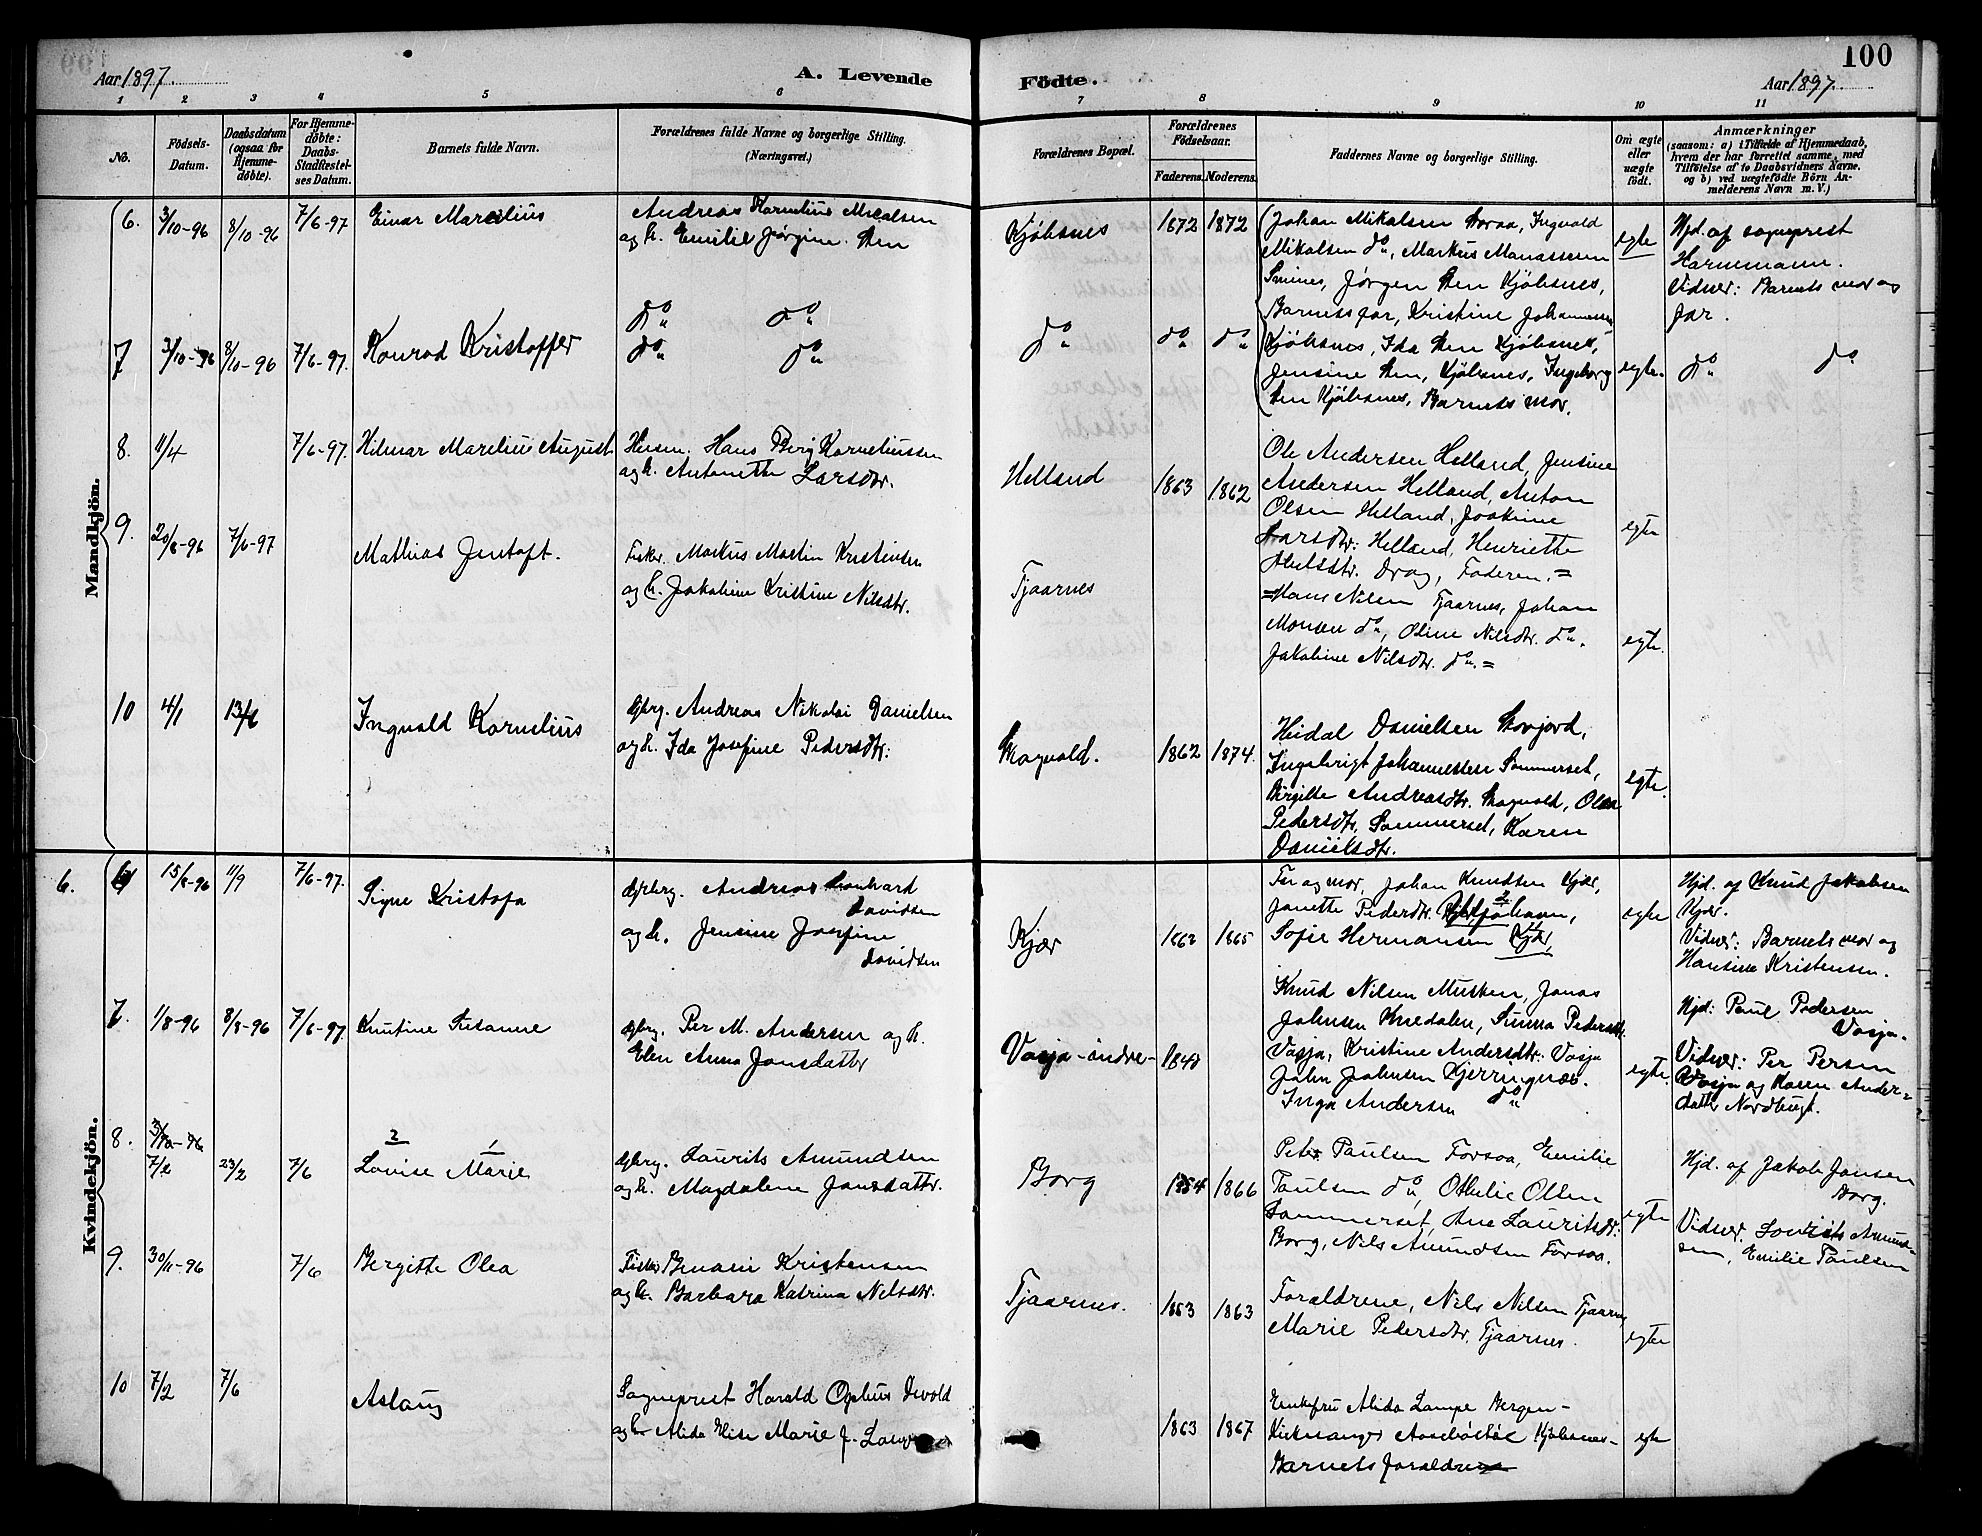 Aar 1897.
A. Levende
Födte.
100
Aar 1897.
1 2 3 4 5 6 7 8 9 10 11
No.
Födsels-Datum.
Daabsdatum (ogsaa for Hjemme-döbte).
For Hjemme-döbte: Daabs-Stadfæstel-ses Datum.
Barnets fulde Navn.
Forældrenes fulde Navne og borgerlige Stilling. (Næringsvei.)
Forældrenes Bopæl.
Forældrenes Födselsaar.
Faderens. Moderens.
Faddernes Navne og borgerlige Stilling.
Om ægte eller uægte födt.
Anmærkninger
(saasom: a) i Tilfælde af Hjemmedaab, hvem der har forrettet samme, med Tilföielse af to Daabsvidners Navne. og b) ved uægtefödte Börn An-melderens Navn m. V.)
Mandkjön.
6. 3/10-96 8/10-96 7/6-97 Einar Marelius
Andreas Kornelius Micalsen
og h. Emilie Jörgine. Sen
Kjöbsnes 1872 1872
Johan Mikalsen Soraa, Ingvald
Mikalsen do, Markus Manassesen
Jørgen Sen Kjöbsnes,
Barnets far, Kristine Johannessen
Kjöbsnes, Ida Sen Kjöbsnes,
Jensine Sen, Kjöbsnes, Ingeborg
Sen Kjöbsnes, Barnets mor.
egte
Hjd. af sogneprest
Hannemann.
Vidner: Barnets mor og
far.
7 3/10-96 8/10-96 7/6-97. Konrad Kristoffer
do do
do do
do do do
egte.
do do
8. 11/4 7/6-97. Hilmar Marelius August
Husm. Hans Berg Korneliussen
og h. Antonette Larsdtr.
Helland 1863 1862
Ole Andersen Helland, Jensine
Andersen Helland, Anton
Olsen Helland, Joakime
Larsdtr: Helland, Henriette
Drag, Faderen. =
egte
9. 20/8-96 7/6-97 Mathias Jentoft.
Fisker. Markus Martin Kristensen
og h. Jakobine Kristine Nilsdtr.
Tjaarnes
=Hans Nilsen Tjaarnes, Johan
Monsen do, Oline Nilsdtr. do.
Jakobine Nilsdtr. do. =
egte.
10 4/1 13/6 Ingvald Kornelius
Gbrg. Andreas Nikolai Danielsen
og h. Ida Josefine Pedersdtr:
Skogvold. 1862 1874.
Heidal Danielsen Skovjord,
Ingebrigt Johannessen Sommerset,
Birgitte Andreasdtr. Skogvold, Olea
Pedersdtr. Sommerset, Karen
Danielsdtr.
egte.
Kvindekjön.
6. 15/8-96 11/9 7/6-97. Signe Kristofa
Gbrg. Andreas Leonhard
Davidsen
og h. Jensine Josefine
Davidsen
Kjær 1862 1865
Far og mor, Johan Knudsen Kjær,
Janette Pedersdtr.
Sofie Hermansen Kjær,
egte
Hjd. af Knud Jakobsen
Kjær.
Vidner: Barnets mor og
Hansine Kristensen.
7. 1/8-96 8/8-96 7/6-97. Knutine Susanne
Gbrg. Per M. Andersen og h.
Elen Anna Jonsdattr
Vasja-indre- 1848
Knud Nilsen Musken, Jonas
Johnsen Knedalen, Sunna Pedersdtr.
Vasja, Kristine Andersdtr. Vasja
John Johnsen Kjerringnæs.
Inga Andersen do
egte.
Hjd: Paul Pedersen
Vasja.
Vidner: Per Persen
Vasja og Karen Anders-
datter Nordbugt.
8. 3/10-96
7/2 23/2 7/6 Lovise Marie
2 1
Gbrg. Laurits Amundsen
og h. Magdalene Jonsdattr.
Borg 1854 1866
Peter Paulsen Forsaa, Emilie
Paulsen do, Othelie Olsen
Sommerset, Ane Lauritsdtr.
Borg, Nils Amundsen Forsaa.
egte
Hjd. af Jakob Jansen
Borg.
Vidner. Lourits Amund-
sen, Emilie Paulsen
9. 30/11-96 7/6 Bergitte Olea
Fisker Benoni Kristensen
og h. Barbara Katrina Nelsdtr.
Tjaarnes. 1863 1863
Foraldrene, Nils Nilsen Tjaarnes,
Marie Pedersdtr. Tjaarnes.
egte
10 7/2 7/6 Aslaug
Sogneprest Harald Ophus Devold
og h. Alida Elise Marie f.
1863 1867
Enkefru Alida Lampe Bergen-
Kirkesanger Kjöbsnes-
Barnets foraldre
egte